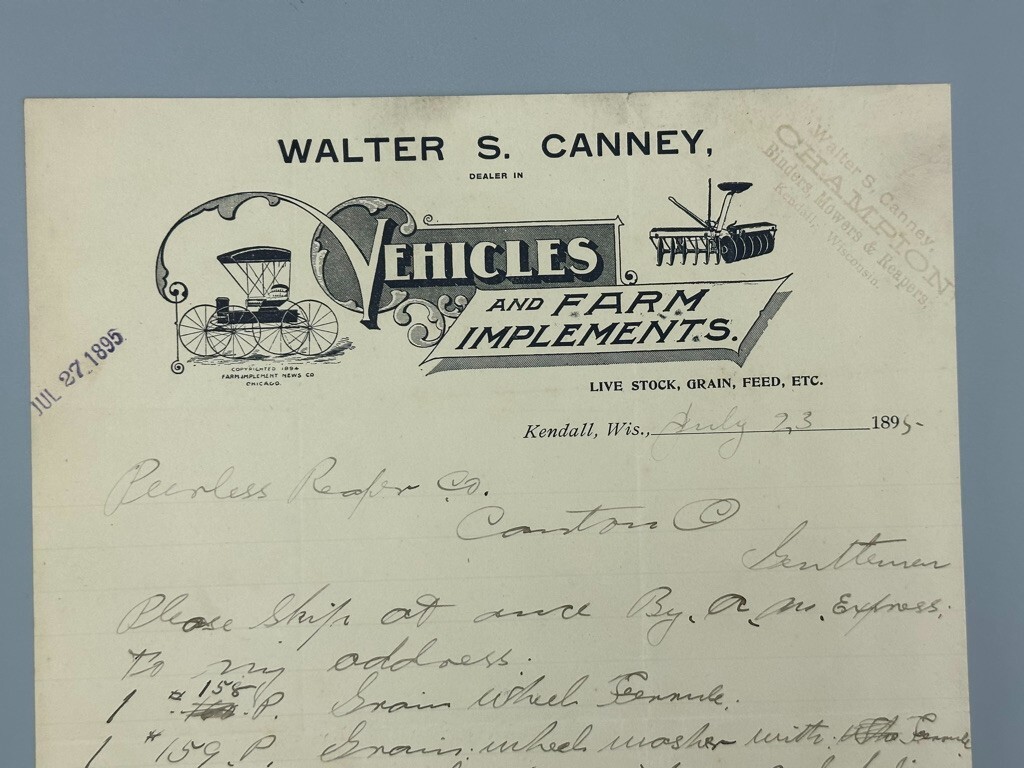 WALTER S. CANNEY,
DEALER IN
VEHICLES
AND FARM
IMPLEMENTS.
COPYRIGHTED 1894
FARM IMPLEMENT NEWS CO
CHICAGO.
LIVE STOCK, GRAIN, FEED, ETC.
Walter S. Canney,
CHAMPION
Binders, Mowers & Reapers,
Kendall, Wisconsin.
JUL 27 1895
Kendall, Wis., July 23 1895-
Peerless Reaper Co.
Canton O
Gentlemen
Please Ship at once By. A. M. Express.
to my address.
1 # 158 P. Grain wheel Ferrule.
1 # 159 P. Grain wheel washer with Ferrule